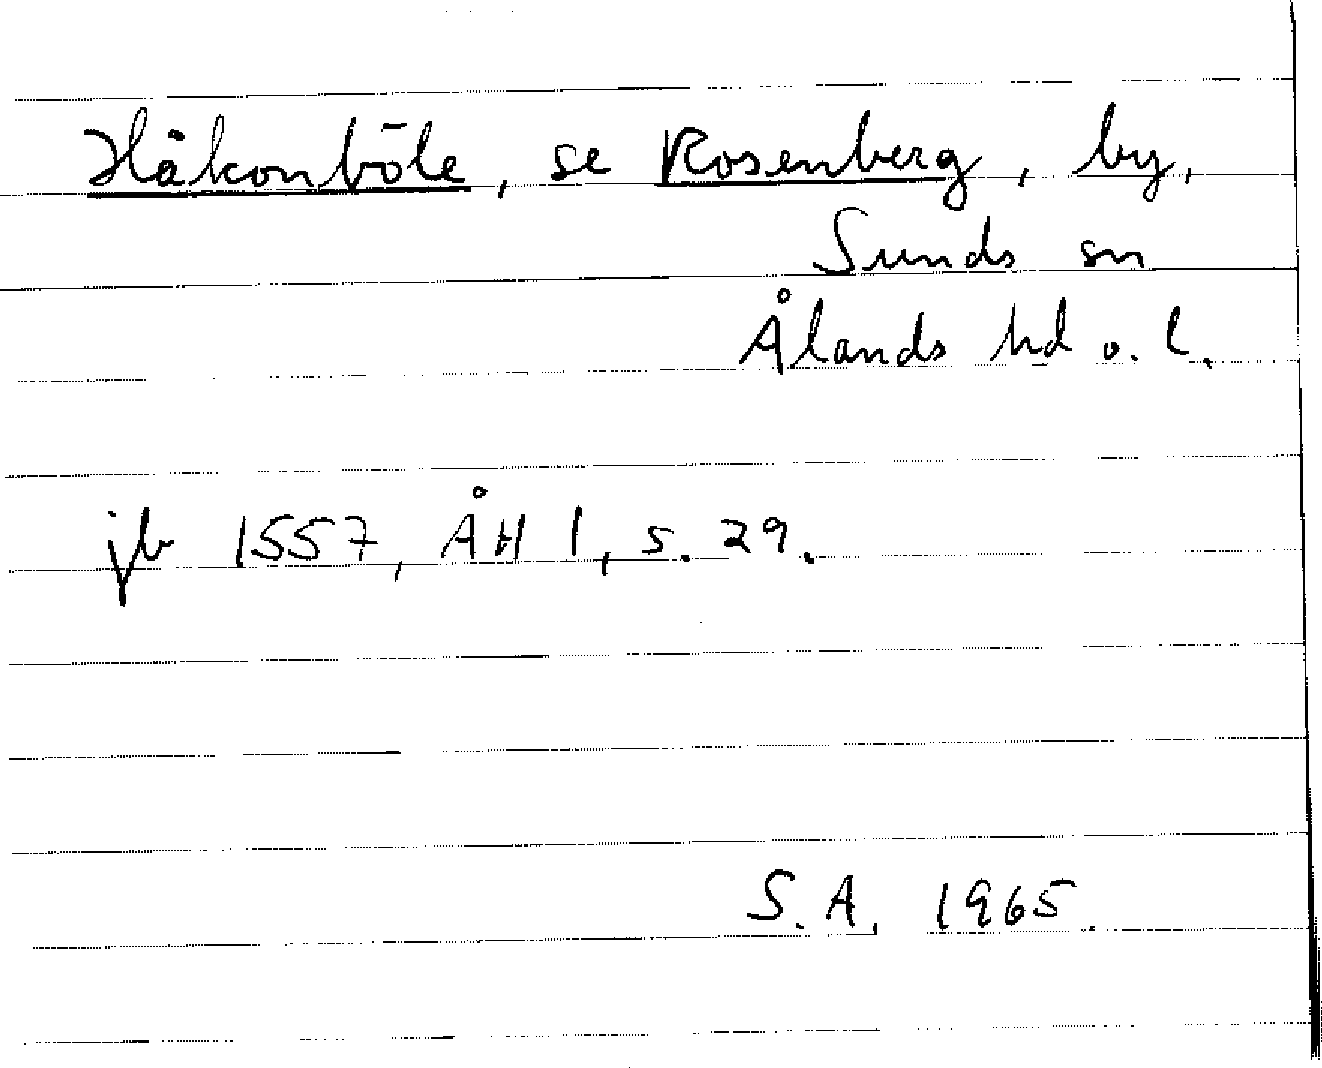 Håkonböle, se Rosenberg, by,
Sunds sn
Ålands hd o. l.
jb 1557, ÅH 1, s. 29.
S.A. 1965.